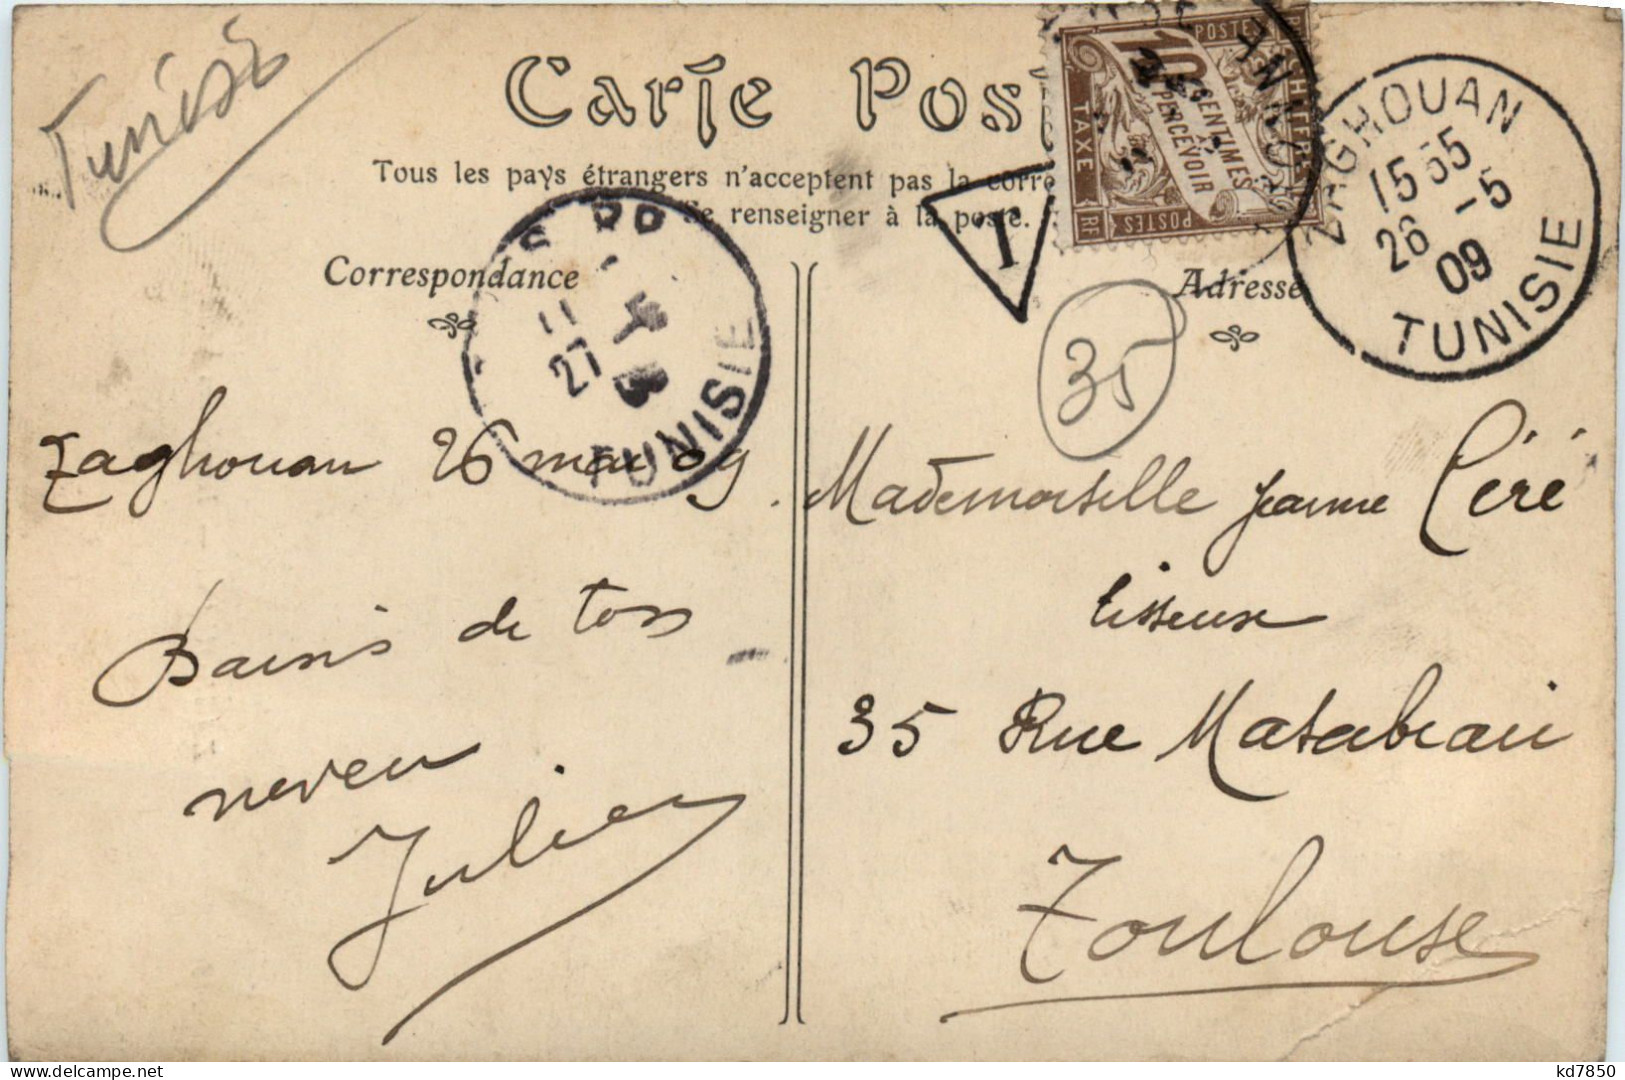 Tunisie
Carte Pos
Tous les pays étrangers n'acceptent pas la corre
Se renseigner à la poste.
CHIFFRE
POSTES
10 CENTIMES
À PERCEVOIR
TAXE
POSTES
RE
T
ZAGHOUAN
15 35
26 -5
09
TUNISIE
Correspondance
Adresse
11
27 -5
TUNISIE
35
Zaghouan 26 mai 09.
Baisis de ton
neveu
Julien
Mademoiselle Jeanne Céré
tisseuse
35 Rue Matabiau
Toulouse
kd7850